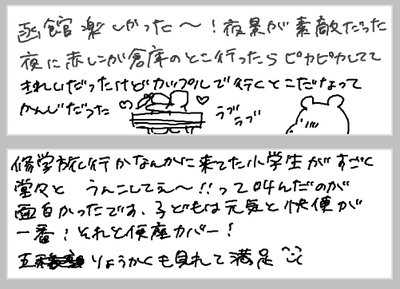 函館楽しかった〜!夜景が素敵だった
夜に赤レンガ倉庫のとこ行ったらピカピカしてて
きれいだったけどカップルで行くとこだなって
かんじだった
ラブ
ラブ
修学旅行かなんかに来てた小学生がすごく
堂々と うんこしてえ〜!!って叫んだのが
面白かったです、子どもは元気と快便が
一番!それと便座カバー!
五稜りょうかくも見れて満足